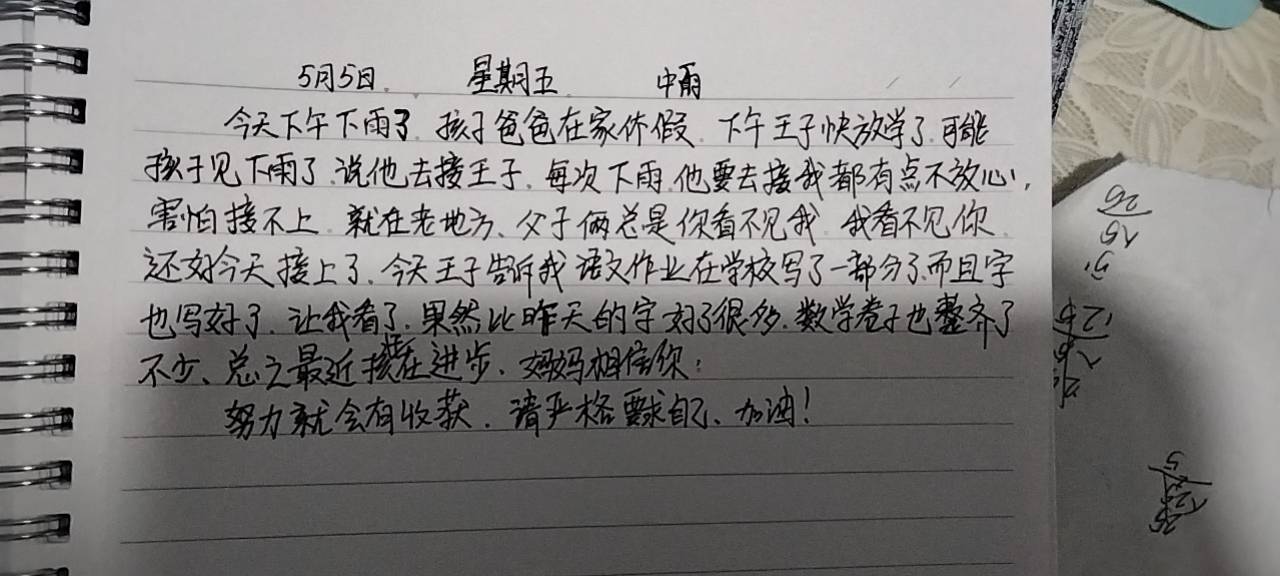 5月5日. 星期五 中雨
今天下午下雨了.孩子爸爸在家休假.下午王子快放学了.可能
孩子见下雨了.说他去接王子.每次下雨.他要去接我都有点不放心,
害怕接不上.就在老地方、父子俩总是你看不见我.我看不见你.
还好今天接上了.今天王子告诉我语文作业在学校写了一部分了而且字
也写好了.让我看了.果然比昨天的字好了很多.数学卷子也整齐了
不少、总之最近在进步.妈妈相信你:
努力就会有收获.请严格要求自己、加油!
26
15
5